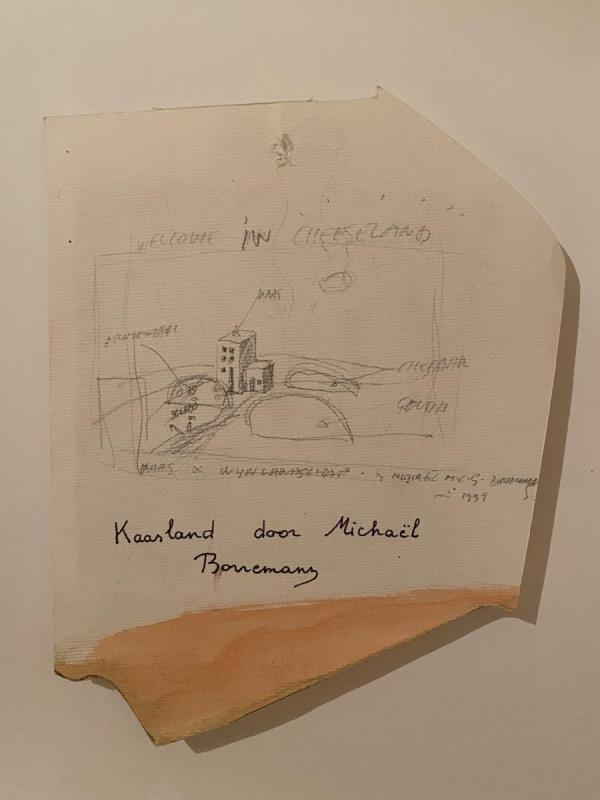 WELCOME IN CHEESELAND
KAAS
CHEDDAR
GOUDA
KAAS & by MICHAËL M.C.G. BORREMANS
1999
Kaasland door Michaël
Borremans